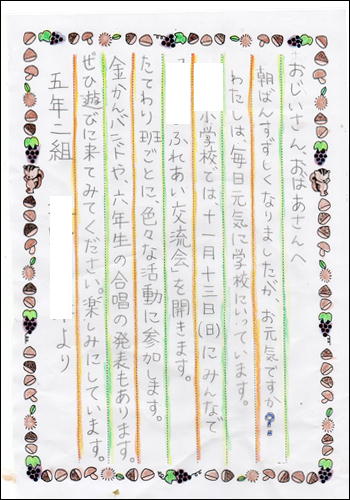 おじいさん、おばあさんへ
朝ばんすずしくなりましたが、お元気ですか?
わたしは、毎日元気に学校にいっています。
小学校では、十一月十三日(日)にみんなで
「ふれあい交流会」を開きます。
たてわり班ごとに、色々な活動に参加します。
金かんバンドや、六年生の合唱の発表もあります。
ぜひ遊びに来てみてください。楽しみにしています。
五年二組
より